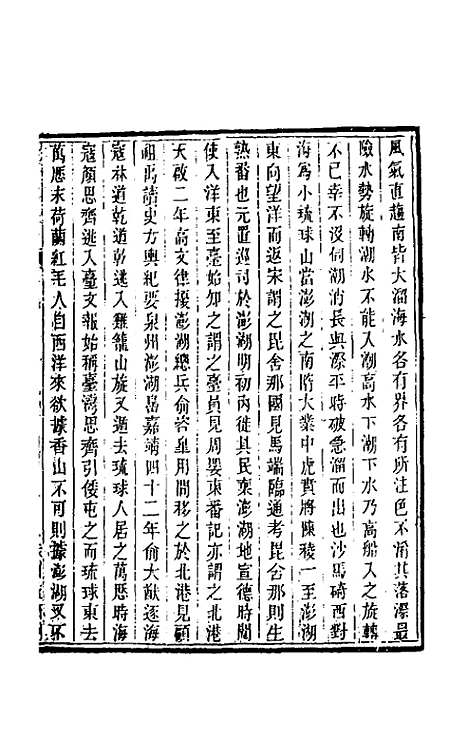 風氣直趨南皆大溜海水各有界各有所注色不淆其落漈最
險水勢旋轉潮水不能入潮高水下湖下水乃高船入之旋轉
不已幸不沒伺潮消長與漈平時破急溜而出也沙馬碕西對
海爲小琉球山當澎湖之南隋大業中虎賁將陳稜一至澎湖
東向望洋而返宋謂之毘舍那國見馬端臨通考毘舍那則生
熟番也元置巡司於澎湖明初內徙其民棄澎湖地宣德時閹
使入洋東至臺始知之謂之臺員見周嬰東番記亦謂之北港
天啟二年高文律據澎湖總兵俞咨臯用間移之於北港見顧
祖禹讀史方輿紀要泉州澎湖嶴嘉靖四十二年俞大猷逐海
寇林道乾道乾遁入雞籠山旋又遁去琉球人居之萬厯時海
寇顏思齊逃入臺文報始稱臺灣思齊引倭屯之而琉球東去
萬厯末荷蘭紅毛人自西洋來欲據香山不可則據澎湖又不